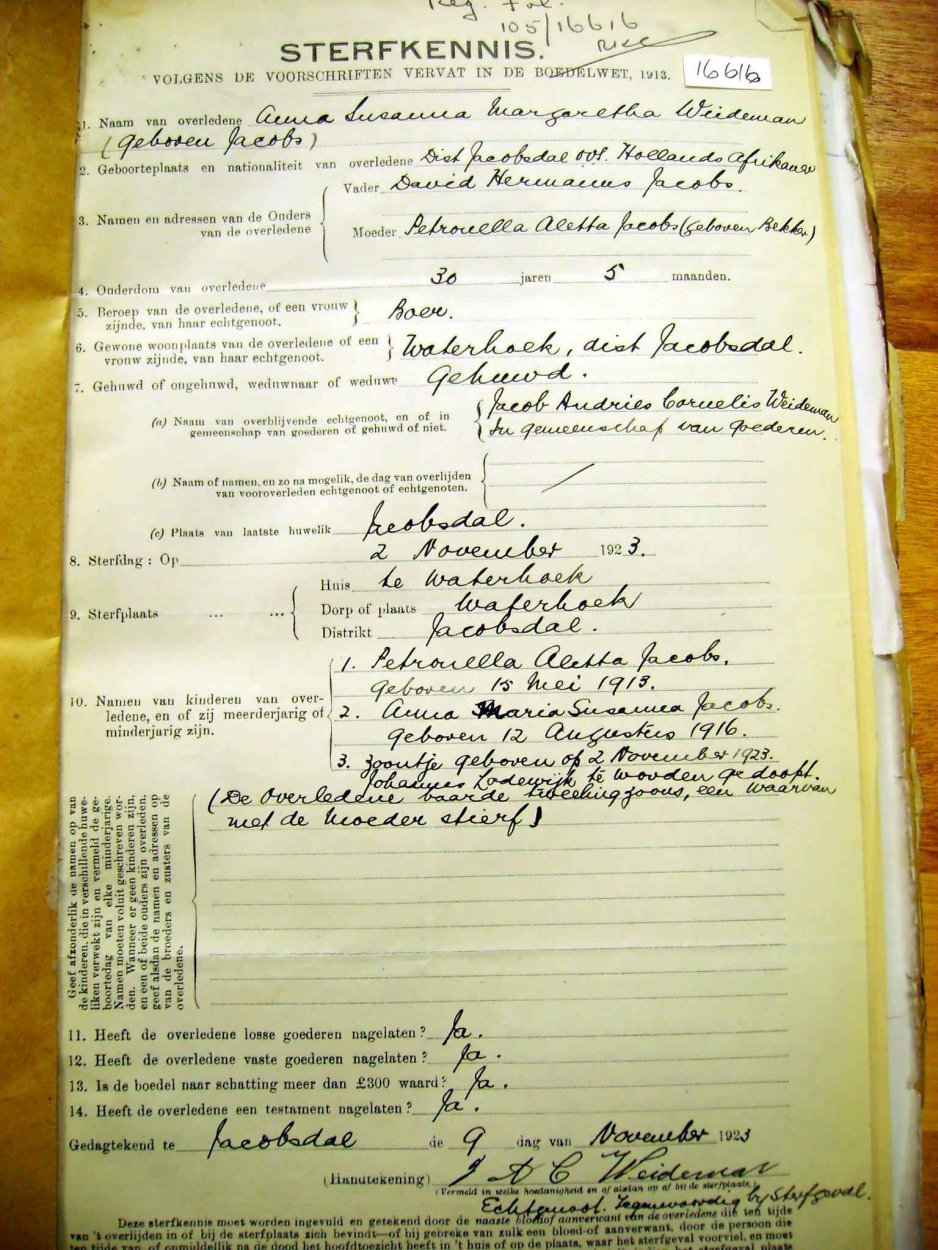 Reg. Fol.
105/16616
STERFKENNIS.
VOLGENS DE VOORSCHRIFTEN VERVAT IN DE BOEDELWET, 1913.
16616
1. Naam van overledene Anna Susanna Margaretha Weideman
(Geboven Jacobs)
2. Geboorteplaats en nationaliteit van overledene Dist Jacobsdal OVS. Hollands Afrikaner
3. Namen en adressen van de Ouders van de overledene
Vader David Hermanus Jacobs.
Moeder Petronella Aletta Jacobs (geboven Bekker)
4. Onderdom van overledene 30 jaren 5 maanden.
5. Beroep van de overledene, of een vrouw zijnde, van haar echtgenoot. Boer.
6. Gewone woonplaats van de overledene of een vrouw zijnde, van haar echtgenoot. Waterhoek, dist Jacobsdal.
7. Gehuwd of ongehuwd, weduwnaar of weduwe Gehuwd.
(a) Naam van overblijvende echtgenoot, en of in gemeenschap van goederen of gehuwd of niet.
Jacob Andries Cornelis Weideman
In gemeenschap van Goederen.
(b) Naam of namen, en zo na mogelik, de dag van overlijden van vooroverleden echtgenoot of echtgenoten.
(c) Plaats van laatste huwelik Jacobsdal.
8. Sterfdag : Op 2 November 1923.
9. Sterfplaats ... ...
Huis te Waterhoek
Dorp of plaats Waterhoek
Distrikt Jacobsdal.
10. Namen van kinderen van overledene, en of zij meerderjarig of minderjarig zijn.
1. Petronella Aletta Jacobs.
Geboven 15 Mei 1913.
2. Anna Maria Susanna Jacobs.
Geboven 12 Augustus 1916.
3. Zoontje geboven op 2 November 1923.
Johannes Lodewijk te worden gedoopt.
(De Overledene baarde tweelingzoons, een waarvan
met de Moeder stierf)
Geef afzonderlik de namen op van
de kinderen, die in verschillende huwe-
liken verwekt zijn en vermeld de ge-
boortedag van elke minderjarige.
Namen moeten voluit geschreven wor-
den. Wanneer er geen kinderen zijn,
en een of beide ouders zijn overleden,
geef alsdan de namen en adressen op
van de broeders en zusters van de
overledene.
11. Heeft de overledene losse goederen nagelaten ? Ja.
12. Heeft de overledene vaste goederen nagelaten ? Ja.
13. Is de boedel naar schatting meer dan £300 waard ? Ja.
14. Heeft de overledene een testament nagelaten ? Ja.
Gedagtekend te Jacobsdal de 9 dag van November 1923
(Handtekening) J A C Weideman
(Vermeld in welke hoedanigheid en of alstan op of bij de sterfplaats.
Echtgenoot. Tegenwoordig bij Sterfgeval.
Deze sterfkennis moet worden ingevuld en getekend door de naaste bloed of aanverwant van de overledene die ten tijde
van 't overlijden in of bij de sterfplaats zich bevindt—of bij gebreke van zulk een bloed-of aanverwant, door de persoon die
ten tijde van of onmiddellik na de dood het hoofdtoezicht heeft in 't huis of op de plaats, waar het sterfgeval voorviel, en moet